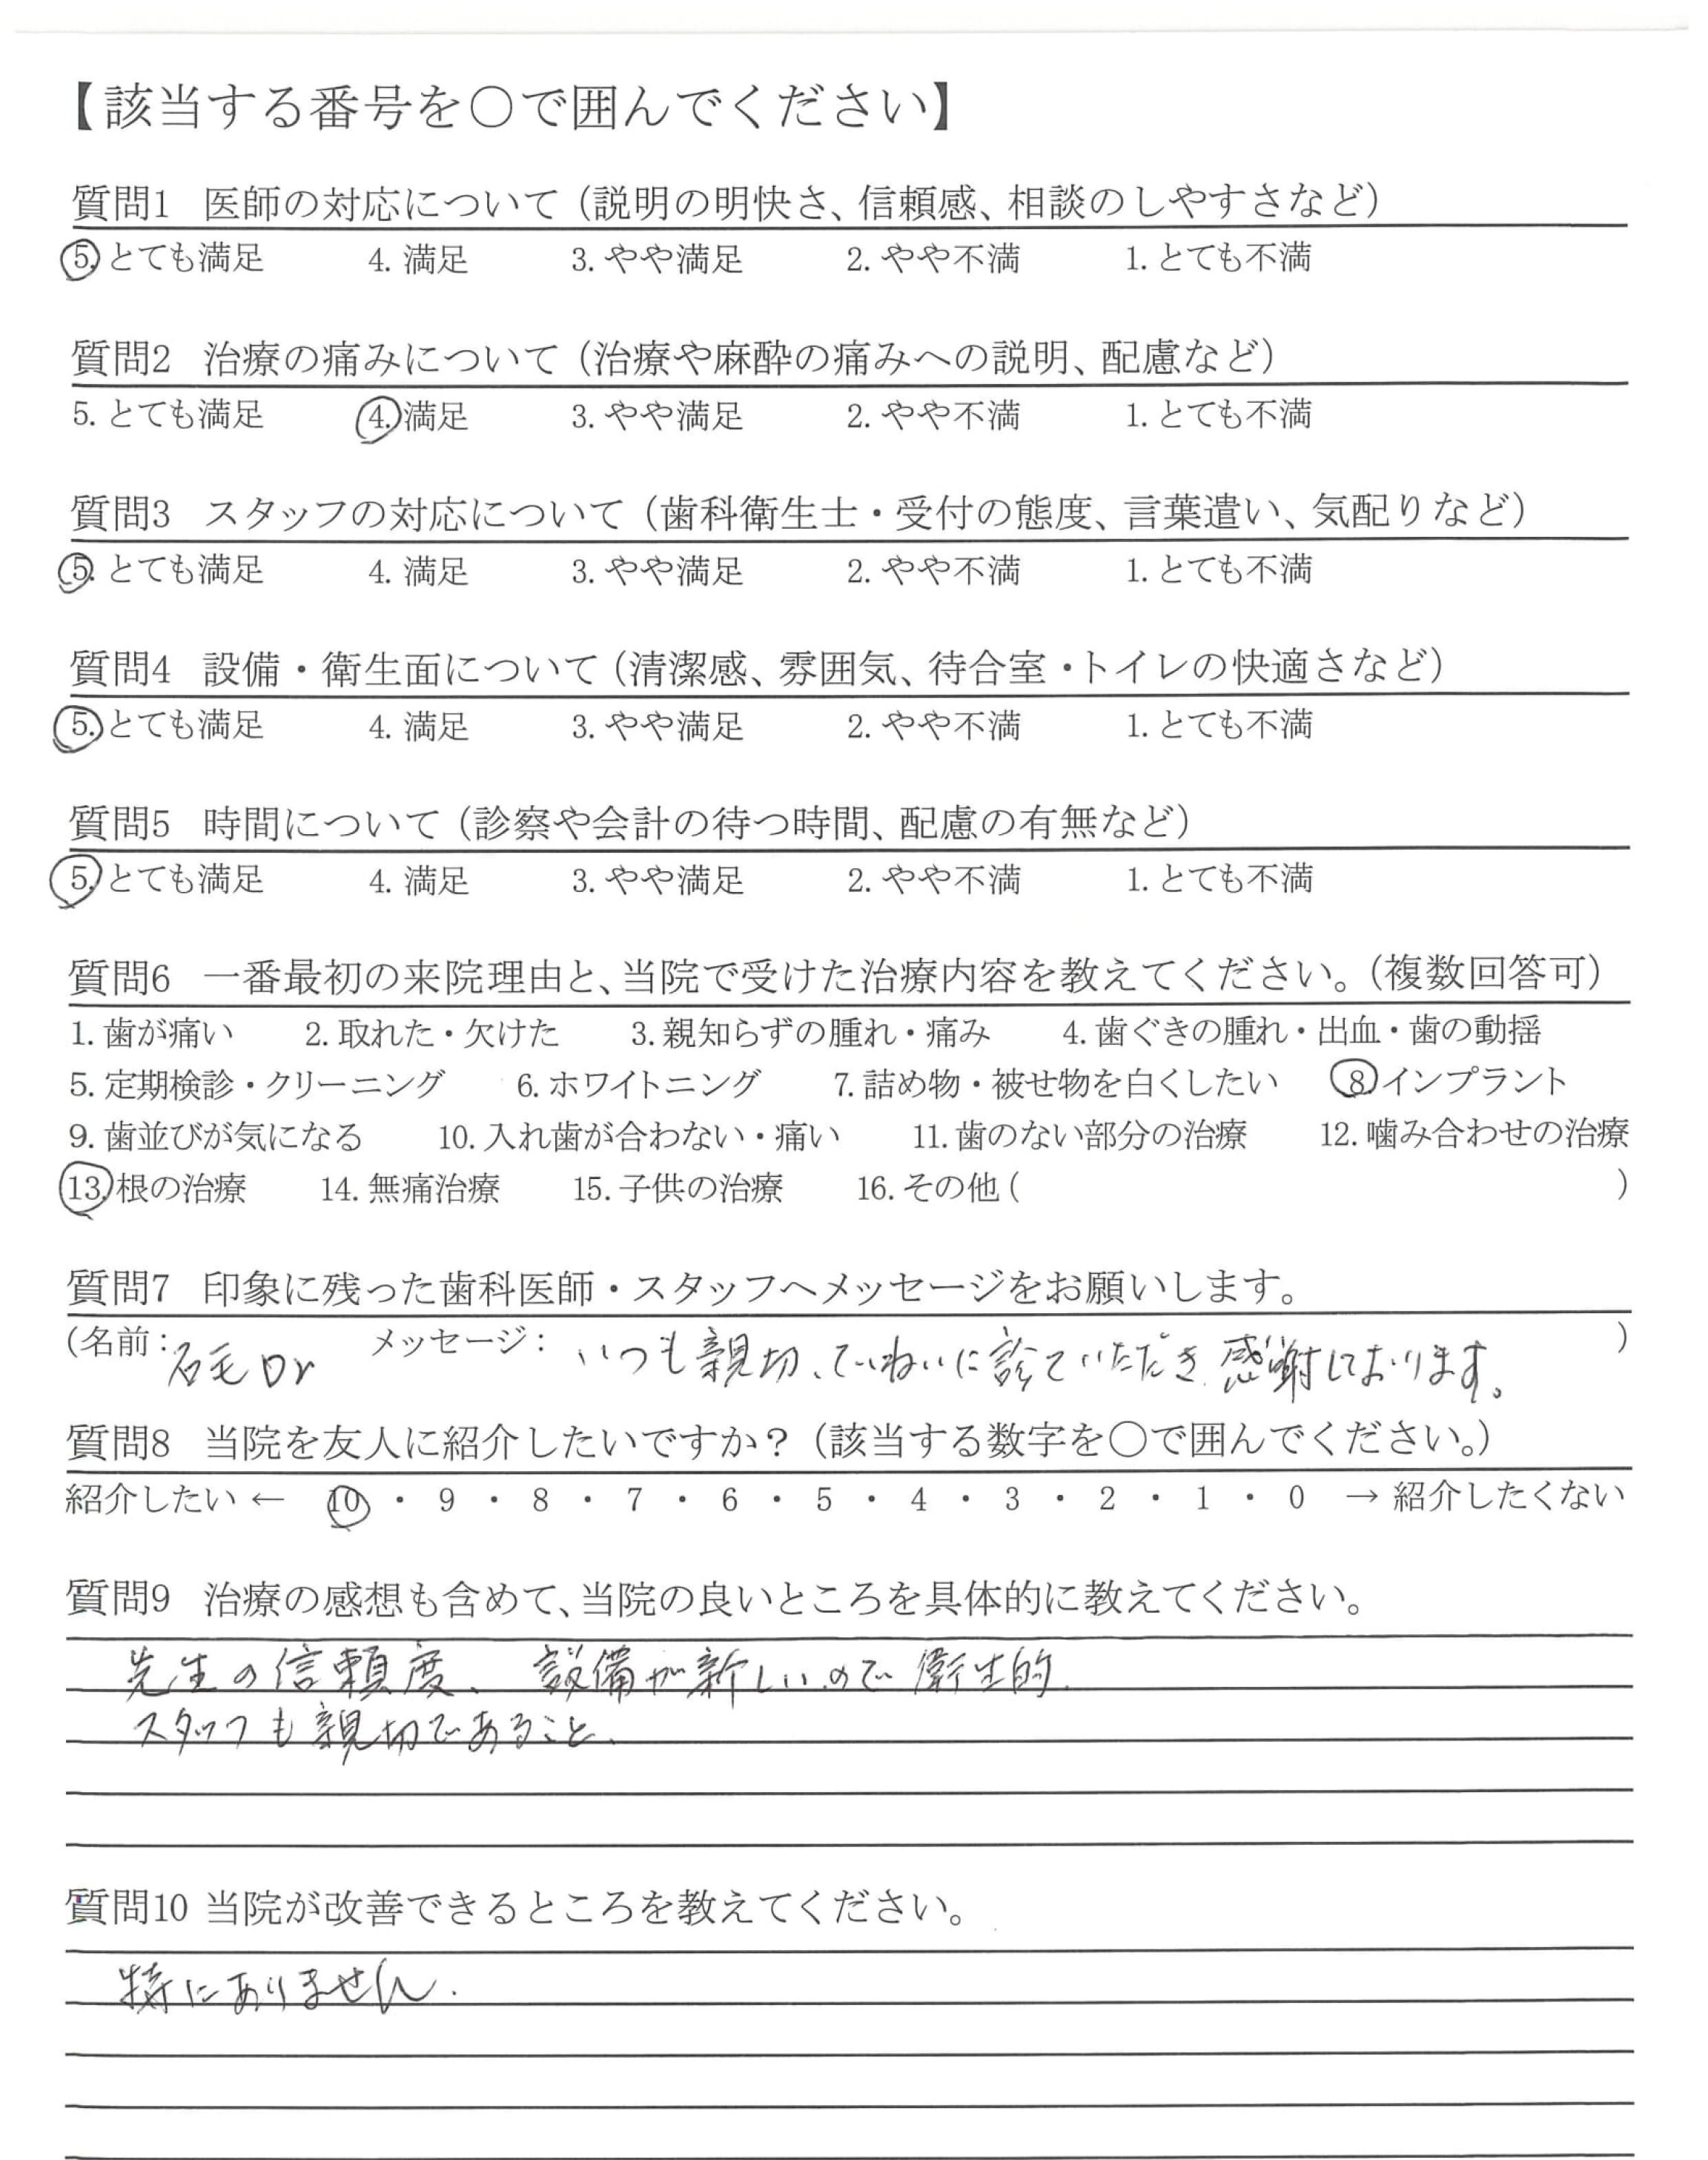 【該当する番号を○で囲んでください】
質問1 医師の対応について（説明の明快さ、信頼感、相談のしやすさなど）
5. とても満足 4. 満足 3. やや満足 2. やや不満 1. とても不満
質問2 治療の痛みについて（治療や麻酔の痛みへの説明、配慮など）
5. とても満足 4. 満足 3. やや満足 2. やや不満 1. とても不満
質問3 スタッフの対応について（歯科衛生士・受付の態度、言葉遣い、気配りなど）
5. とても満足 4. 満足 3. やや満足 2. やや不満 1. とても不満
質問4 設備・衛生面について（清潔感、雰囲気、待合室・トイレの快適さなど）
5. とても満足 4. 満足 3. やや満足 2. やや不満 1. とても不満
質問5 時間について（診察や会計の待つ時間、配慮の有無など）
5. とても満足 4. 満足 3. やや満足 2. やや不満 1. とても不満
質問6 一番最初の来院理由と、当院で受けた治療内容を教えてください。（複数回答可）
1. 歯が痛い 2. 取れた・欠けた 3. 親知らずの腫れ・痛み 4. 歯ぐきの腫れ・出血・歯の動揺
5. 定期検診・クリーニング 6. ホワイトニング 7. 詰め物・被せ物を白くしたい 8. インプラント
9. 歯並びが気になる 10. 入れ歯が合わない・痛い 11. 歯のない部分の治療 12. 噛み合わせの治療
13. 根の治療 14. 無痛治療 15. 子供の治療 16. その他（ ）
質問7 印象に残った歯科医師・スタッフへメッセージをお願いします。
（名前：石毛Dr メッセージ：いつも親切、ていねいに診ていただき感謝しております。）
質問8 当院を友人に紹介したいですか？（該当する数字を○で囲んでください。）
紹介したい ← 10 ・ 9 ・ 8 ・ 7 ・ 6 ・ 5 ・ 4 ・ 3 ・ 2 ・ 1 ・ 0 → 紹介したくない
質問9 治療の感想も含めて、当院の良いところを具体的に教えてください。
先生の信頼度、設備が新しいので衛生的.
スタッフも親切であること.
質問10 当院が改善できるところを教えてください。
特にありません.